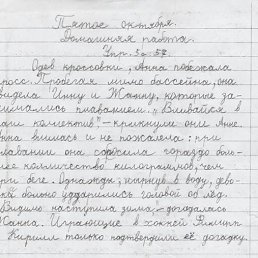 Пятое октября.
Домашняя работа.
Упр.
Одев кроссовки, Анна побежала
кросс. Пробегая мимо бассейна, она
видела Инну и Жанну, которые за-
нимались плаванием. „Вливайся в
наш коллектив" – крикнули они Анне.
Анна влилась и не пожалела: при
плавании она сбросила гораздо боль-
шее количество килограммов, чем
при беге. Однажды, нырнув в воду, дево-
чки больно ударились головой об лёд.
Видимо наступила зима, – догадалась
Жанна. Играющие в хоккей Филипп
и Кирилл только подтвердили её догадку.